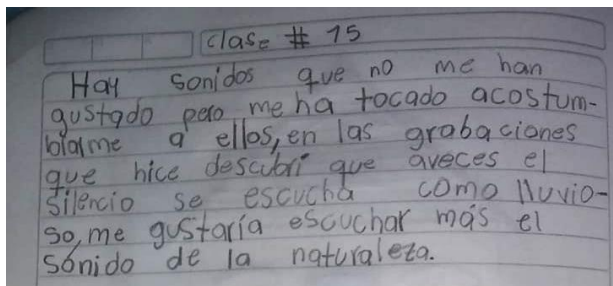 clase # 15
Hay sonidos que no me han
gustado pero me ha tocado acostum-
blarme a ellos, en las grabaciones
que hice descubrí que aveces el
silencio se escucha como lluvio-
so, me gustaría escuchar más el
sónido de la naturaleza.